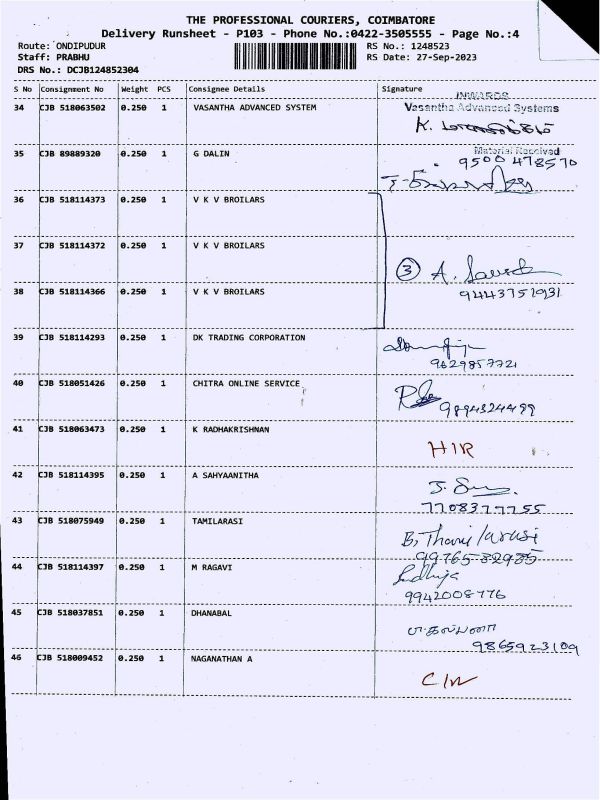 THE PROFESSIONAL COURIERS, COIMBATORE
Delivery Runsheet - P103 - Phone No.:0422-3505555 - Page No.:4
Route: ONDIPUDUR RS No.: 1248523
Staff: PRABHU RS Date: 27-Sep-2023
DRS No.: DCJB124852304
S No Consignment No Weight PCS Consignee Details Signature
INWARDS
34 CJB 518063502 0.250 1 VASANTHA ADVANCED SYSTEM Vasantha Advanced Systems
K.
Material Received
35 CJB 89889320 0.250 1 G DALIN 9500 478570
36 CJB 518114373 0.250 1 V K V BROILARS
37 CJB 518114372 0.250 1 V K V BROILARS
3 A.
38 CJB 518114366 0.250 1 V K V BROILARS
39 CJB 518114293 0.250 1 DK TRADING CORPORATION
9629857721
40 CJB 518051426 0.250 1 CHITRA ONLINE SERVICE
9894324499
41 CJB 518063473 0.250 1 K RADHAKRISHNAN
HIR
42 CJB 518114395 0.250 1 A SAHYAANITHA
7708377755
43 CJB 518075949 0.250 1 TAMILARASI
99765-82985
44 CJB 518114397 0.250 1 M RAGAVI
9942008776
45 CJB 518037851 0.250 1 DHANABAL
9865923109
46 CJB 518009452 0.250 1 NAGANATHAN A